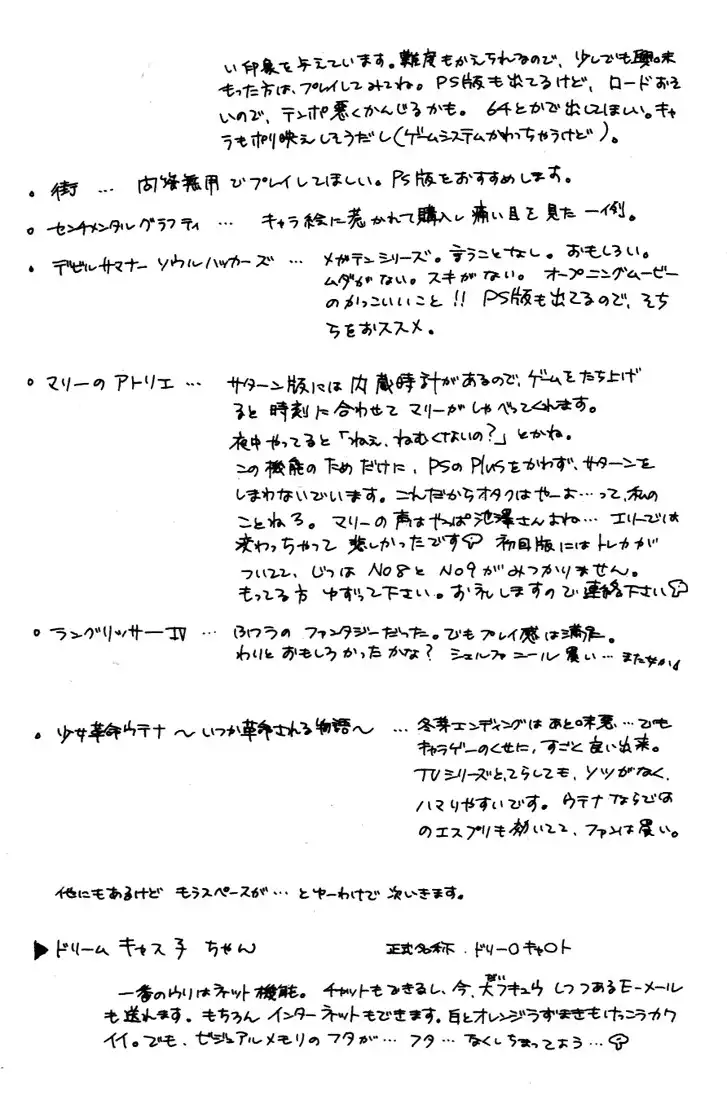 い印象を与えています。難度もかえられるので、少しでも興味
もった方は、プレイしてみてね。PS版も出てるけど、ロードおそ
いので、テンポ悪くかんじるかも。64とかで出してほしい。キャ
ラもポリ映えしそうだし(ゲームシステムかわっちゃうけど)。
• 街 … 問答無用でプレイしてほしい。PS版をおすすめします。
• センチメンタルグラフティ … キャラ絵に惹かれて購入し痛い目を見た一例。
• デビルサマナー ソウルハッカーズ … メガテンシリーズ。言うことなし。おもしろい。
ムダがない。スキがない。オープニングムービー
のかっこいいこと!! PS版も出てるので、そち
らをおススメ。
• マリーのアトリエ … サターン版には内蔵時計があるので、ゲームをたち上げ
ると時刻に合わせてマリーがしゃべってくれます。
夜中やってると「ねぇ、ねむくないの?」とかね。
この機能のためだけに、PSのPlusをかわず、サターンを
しまわないでいます。こんだからオタクはやーよ…って、私の
ことねろ。マリーの声はやっぱ池澤さんよね… エリーでは
変わっちゃって悲しかったです 初回版にはトレカが
ついてて、じつはNo8とNo9がみつかりません。
もってる方 ゆずって下さい。お礼しますので連絡下さい
• ラングリッサーIV … のファンタジーだった。でもプレイ感は満足。
わりとおもしろかったかな? シェルファニール買い…
• 少女革命ウテナ 〜いつか革命される物語〜 … 冬芽エンディングはあと味悪…でも
キャラゲーのくせに、すごく良い出来。
TVシリーズとてらしても、ソツがなく、
ハマりやすいです。ウテナならでは
のエスプリも効いてて、ファンは買い。
他にもあるけど もうスペースが… とゆーわけで 次いきます。
▶ドリーム キャス子 ちゃん 正式名称・ドリー〇キャ〇ト
一番のウリはネット機能。チャットもできるし、今、大ブキュウしつつあるE-メール
も送れます。もちろん インターネットもできます。白とオレンジうずまきもけっこうカワ
イイ。でも、ビジュアルメモリのフタが… フタ… なくしちまってよう…